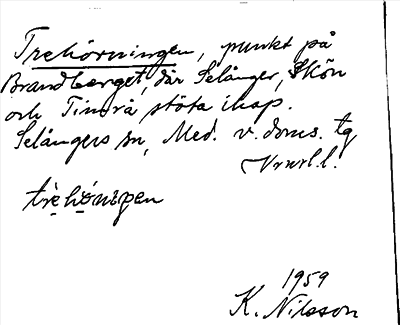 Trehörningen, punkt på
Brandberget, där Selånger, Skön
och Timrå stöta ihop.
Selångers sn, Med. v. doms. tg
trèhö̀nıɡen
1959
K. Nilsson